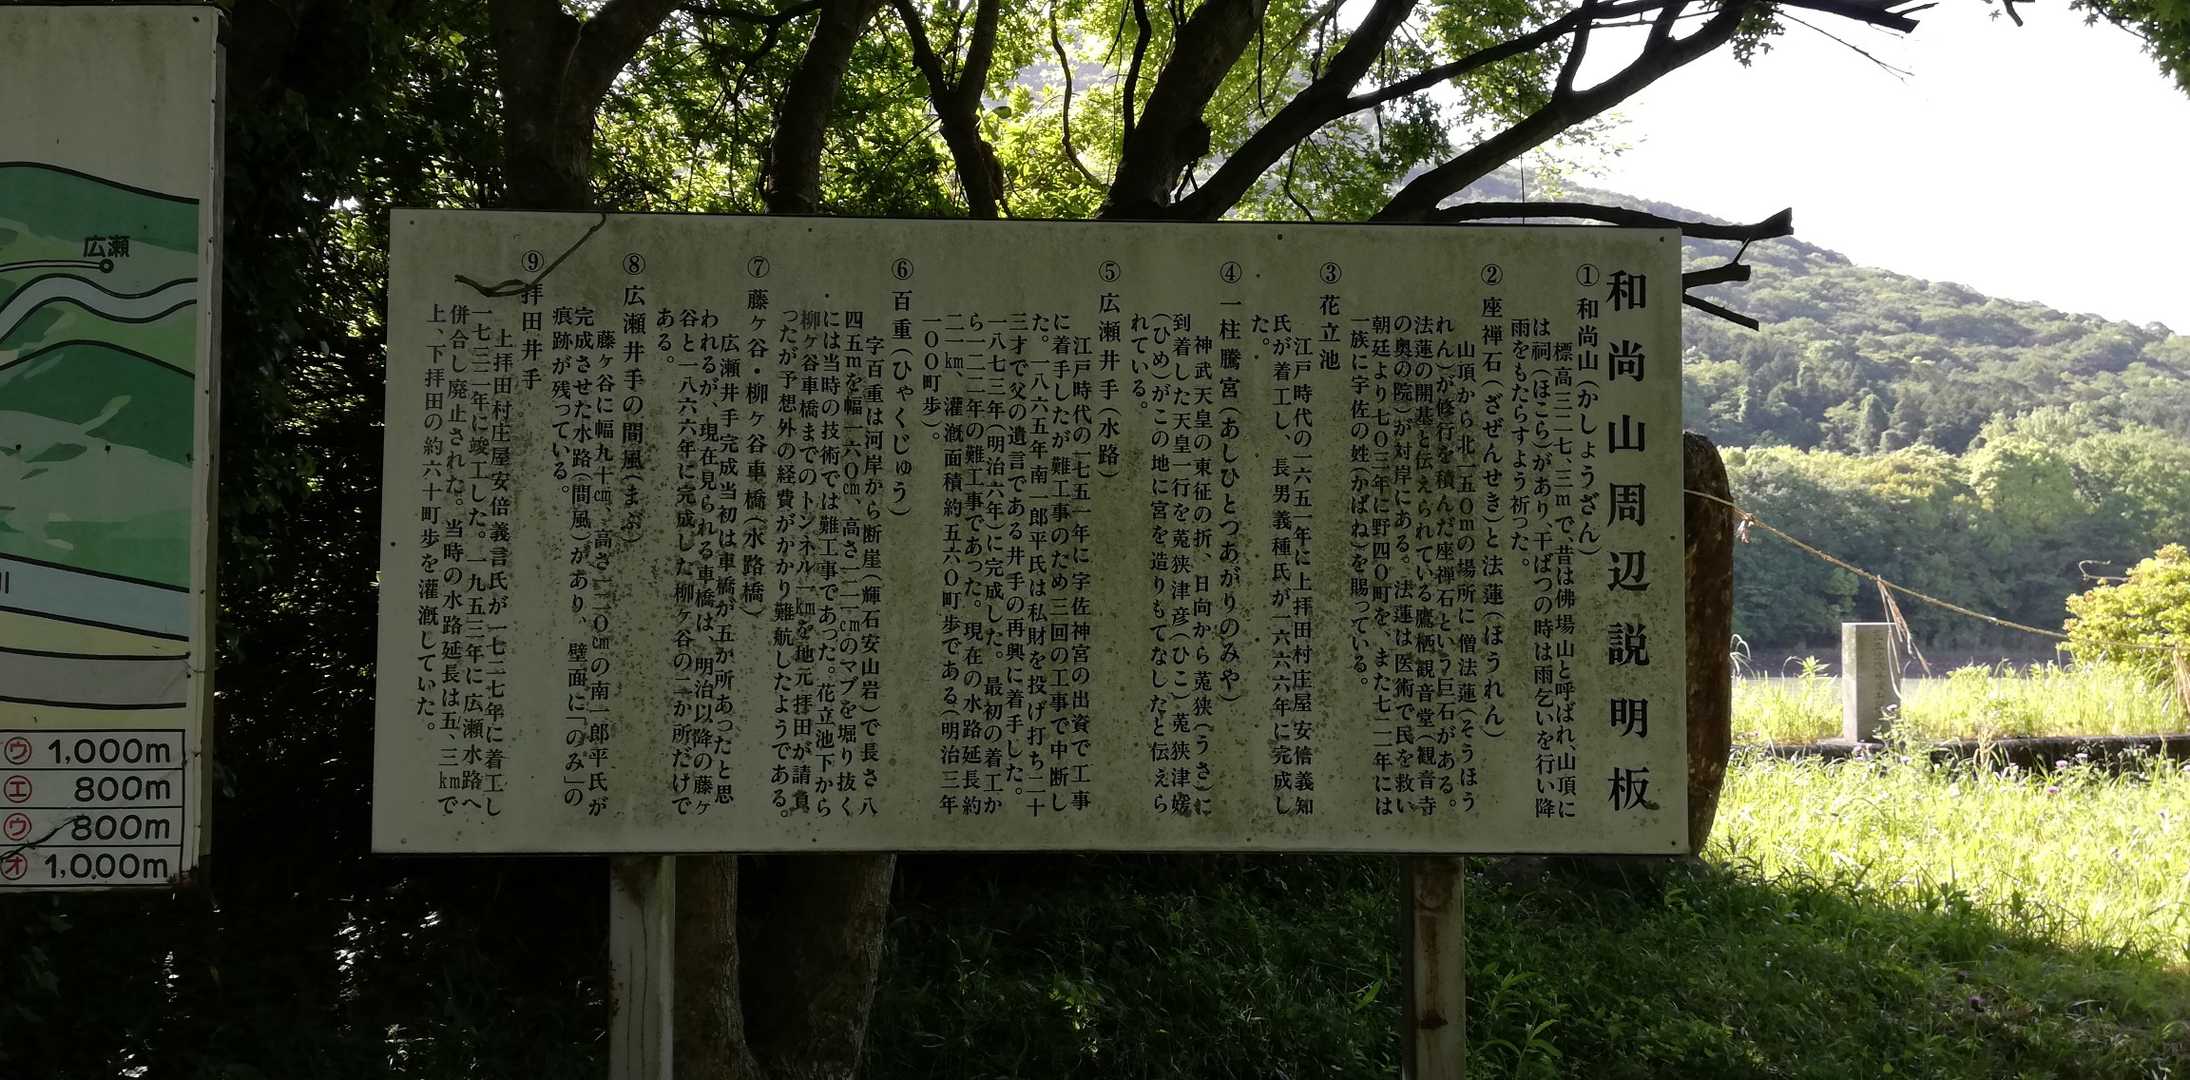 和尚山周辺説明板
①和尚山(かしょうざん)
標高三二七、三mで、昔は佛場山と呼ばれ、山頂に
は祠(ほこら)があり、干ばつの時は雨乞いを行い降
雨をもたらすよう祈った。
②座禅石(ざぜんせき)と法蓮(ほうれん)
山頂から北一五〇mの場所に僧法蓮(そうほう
れん)が修行を積んだ座禅石という巨石がある。
法蓮の開基と伝えられている鷹栖観音堂(観音寺
の奥の院)が対岸にある。法蓮は医術で民を救い
朝廷より七〇三年に野四〇町を、また七二一年には
一族に宇佐の姓(かばね)を賜っている。
③花立池
江戸時代の一六五一年に上拝田村庄屋安倍義知
氏が着工し、長男義種氏が一六六六年に完成し
た。
④一柱騰宮(あしひとつあがりのみや)
神武天皇の東征の折、日向から菟狭(うさ)に
到着した天皇一行を菟狭津彦(ひこ)菟狭津媛
(ひめ)がこの地に宮を造りもてなしたと伝えら
れている。
⑤広瀬井手(水路)
江戸時代の一七五一年に宇佐神宮の出資で工事
に着手したが難工事のため三回の工事で中断し
た。一八六五年南一郎平氏は私財を投げ打ち二十
三才で父の遺言である井手の再興に着手した。
一八七三年(明治六年)に完成した。最初の着工か
ら一二二年の難工事であった。現在の水路延長約
二一km、灌漑面積約五六〇町歩である(明治三年
一〇〇町歩)。
⑥百重(ひゃくじゅう)
字百重は河岸から断崖(輝石安山岩)で長さ八
四五mを幅一六〇cm、高さ二一一cmのマブを堀り抜く
には当時の技術では難工事であった。花立池下から
柳ヶ谷車橋までのトンネル一kmを地元拝田が請負
ったが予想外の経費がかかり難航したようである。
⑦藤ヶ谷・柳ヶ谷車橋(水路橋)
広瀬井手完成当初は車橋が五か所あったと思
われるが、現在見られる車橋は、明治以降の藤ヶ
谷と一八六六年に完成した柳ヶ谷の二か所だけで
ある。
⑧広瀬井手の間風(まぶ)
藤ヶ谷に幅九十cm、高さ一二〇cmの南一郎平氏が
完成させた水路(間風)があり、壁面に「のみ」の
痕跡が残っている。
⑨拝田井手
上拝田村庄屋安倍義言氏が一七二七年に着工し
一七三二年に竣工した。一九五三年に広瀬水路へ
併合し廃止された。当時の水路延長は五、三kmで
上、下拝田の約六十町歩を灌漑していた。
広瀬
川
ウ 1,000m
エ 800m
ウ 800m
オ 1,000m